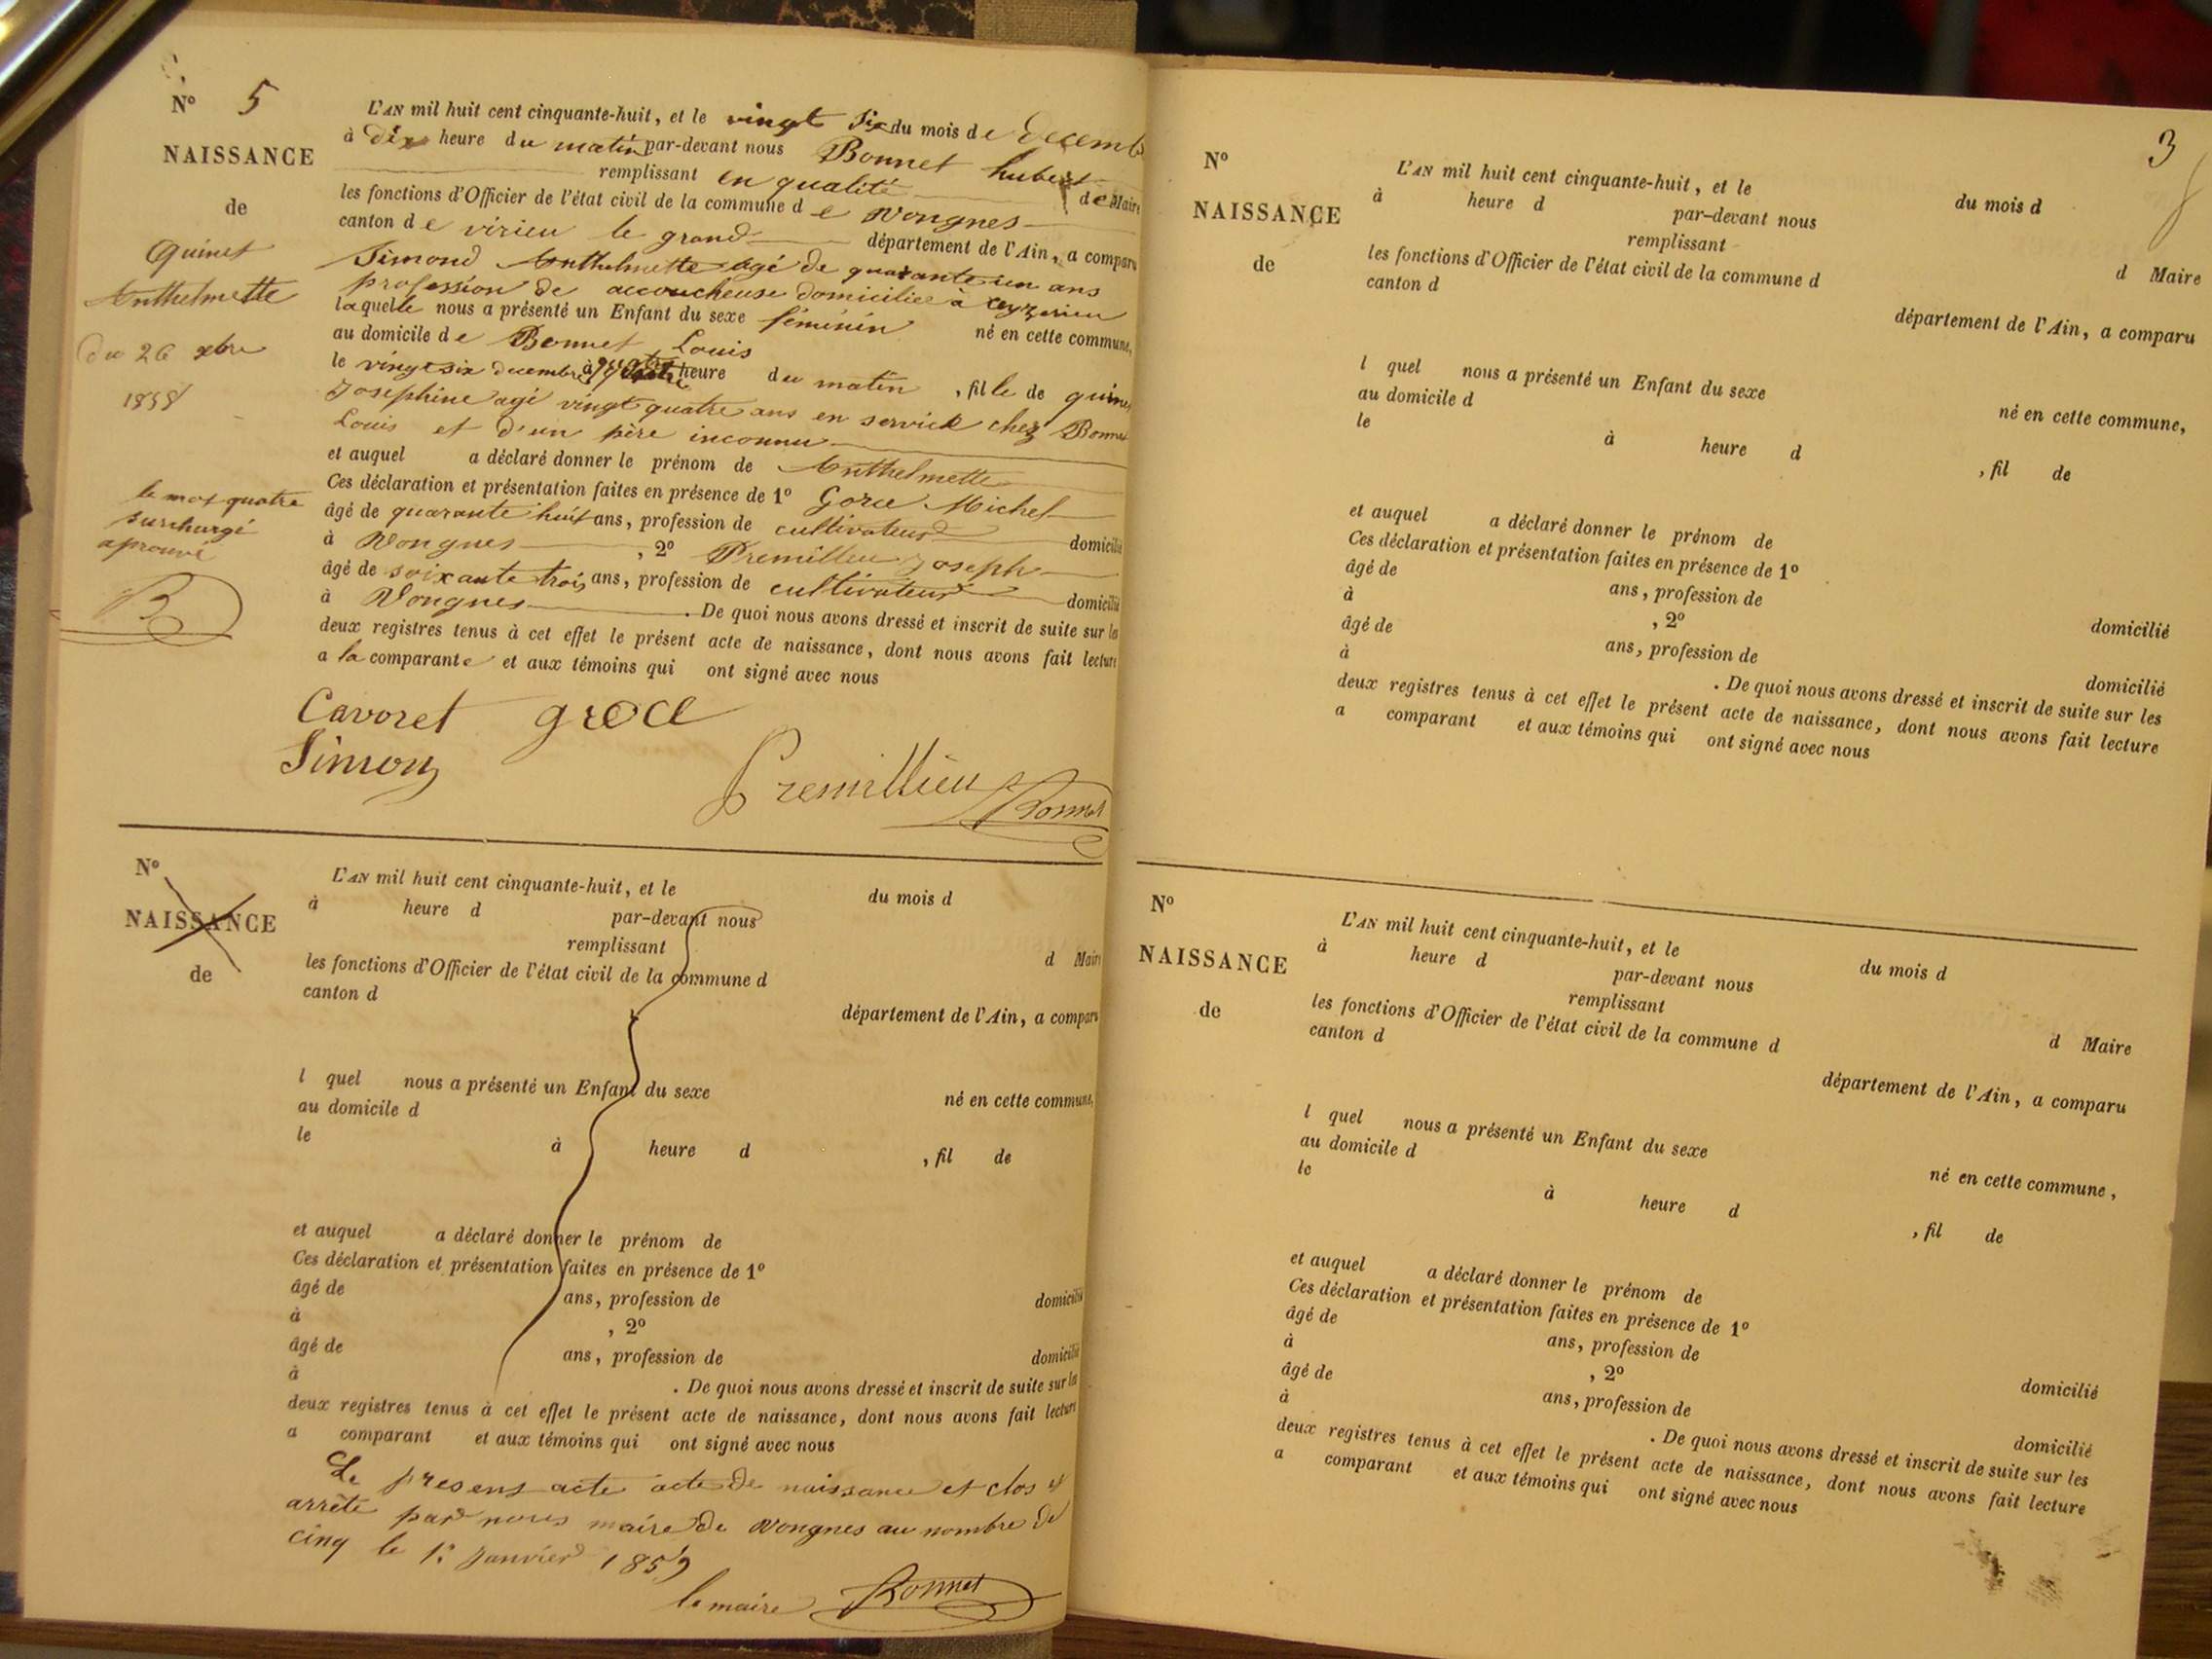 N° 5
NAISSANCE
de
Quinet
Anthelmette
du 26 xbre
1858
le mot quatre
surchargé
aprouvé
B
L'AN mil huit cent cinquante-huit, et le vingt six du mois de decemb
à dix heure du matin par-devant nous Bonnet hubert
remplissant en qualité de Maire
les fonctions d'Officier de l'état civil de la commune de Vongnes
canton de virieu le grand département de l'Ain, a comparu
Simond Anthelmette agé de quarante un ans
profession de accoucheuse domiciliée à ceyzerieu
laquelle nous a présenté un Enfant du sexe féminin né en cette commune,
au domicile de Bonnet Louis
le vingt six decembre à quatre heure du matin, fille de quinet
Josephine agé vingt quatre ans en service chez Bonnet
Louis et d'un père inconnu
et auquel a déclaré donner le prénom de Anthelmette
Ces déclaration et présentation faites en présence de 1° Gorce Michel
âgé de quarante huit ans, profession de cultivateur domicilié
à Vongnes, 2° Premillieu Joseph
âgé de soixante trois ans, profession de cultivateur domicilié
à Vongnes. De quoi nous avons dressé et inscrit de suite sur les
deux registres tenus à cet effet le présent acte de naissance, dont nous avons fait lecture
a la comparante et aux témoins qui ont signé avec nous
Cavoret
Simon
Premillieu Bonnet
N°
NAISSANCE
de
L'AN mil huit cent cinquante-huit, et le du mois d
à heure d par-devant nous
remplissant d Maire
les fonctions d'Officier de l'état civil de la commune d
canton d département de l'Ain, a comparu
l quel nous a présenté un Enfant du sexe né en cette commune,
au domicile d
le à heure d , fil de
et auquel a déclaré donner le prénom de
Ces déclaration et présentation faites en présence de 1°
âgé de ans, profession de domicilié
à , 2°
âgé de ans, profession de domicilié
à . De quoi nous avons dressé et inscrit de suite sur les
deux registres tenus à cet effet le présent acte de naissance, dont nous avons fait lecture
a comparant et aux témoins qui ont signé avec nous
Le present acte acte de naissance et clos et
arrêté par nous maire de Vongnes au nombre de
cinq le 1er Janvier 1859
le maire Bonnet
3
N°
NAISSANCE
de
L'AN mil huit cent cinquante-huit, et le du mois d
à heure d par-devant nous
remplissant d Maire
les fonctions d'Officier de l'état civil de la commune d
canton d département de l'Ain, a comparu
l quel nous a présenté un Enfant du sexe né en cette commune,
au domicile d
le à heure d , fil de
et auquel a déclaré donner le prénom de
Ces déclaration et présentation faites en présence de 1°
âgé de ans, profession de domicilié
à , 2°
âgé de ans, profession de domicilié
à . De quoi nous avons dressé et inscrit de suite sur les
deux registres tenus à cet effet le présent acte de naissance, dont nous avons fait lecture
a comparant et aux témoins qui ont signé avec nous
N°
NAISSANCE
de
L'AN mil huit cent cinquante-huit, et le du mois d
à heure d par-devant nous
remplissant d Maire
les fonctions d'Officier de l'état civil de la commune d
canton d département de l'Ain, a comparu
l quel nous a présenté un Enfant du sexe né en cette commune,
au domicile d
le à heure d , fil de
et auquel a déclaré donner le prénom de
Ces déclaration et présentation faites en présence de 1°
âgé de ans, profession de domicilié
à , 2°
âgé de ans, profession de domicilié
à . De quoi nous avons dressé et inscrit de suite sur les
deux registres tenus à cet effet le présent acte de naissance, dont nous avons fait lecture
a comparant et aux témoins qui ont signé avec nous